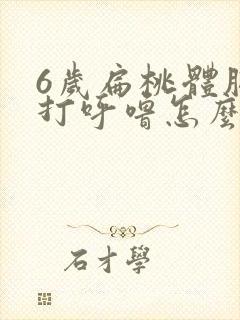 6歲扁桃體
打呼嚕怎麼
石才學